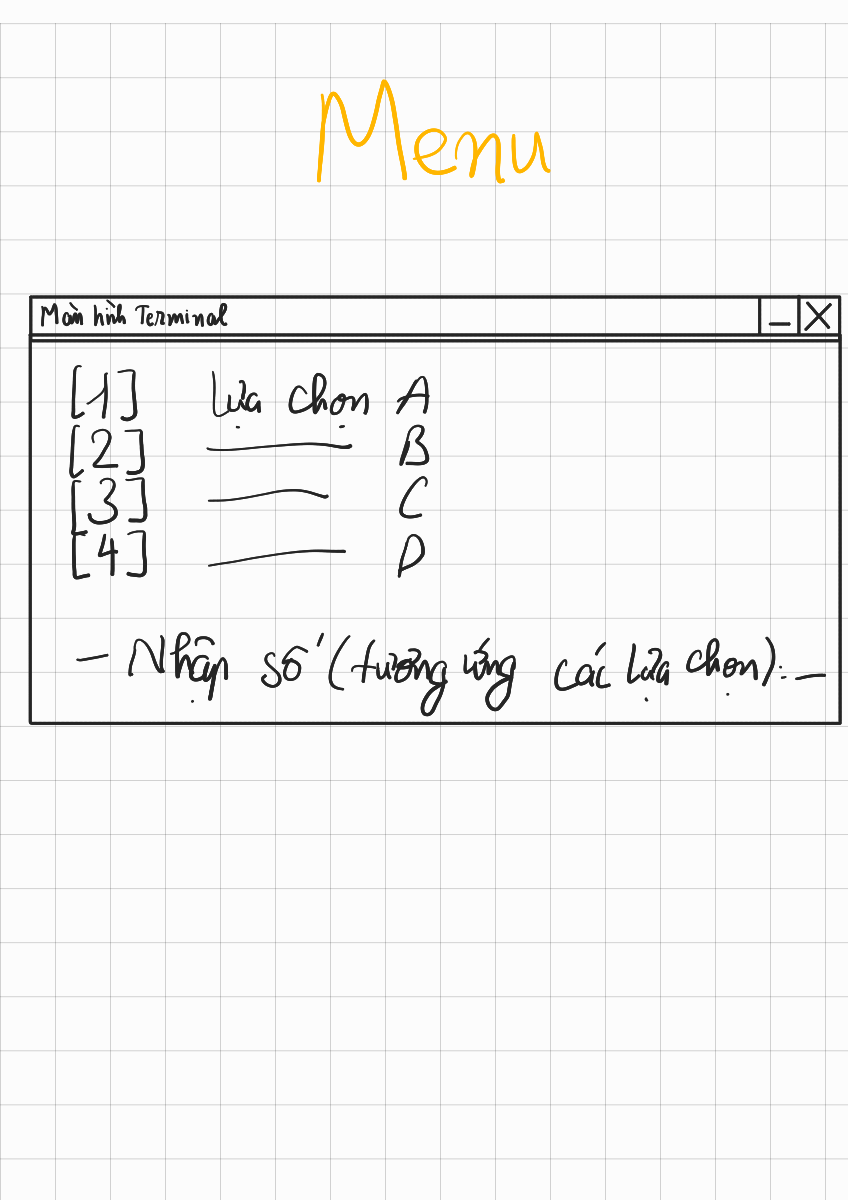 Menu
Màn hình Terminal
[1] Lựa chọn A
[2] ——— B
[3] ——— C
[4] ——— D
— Nhập số (tương ứng các lựa chọn): _